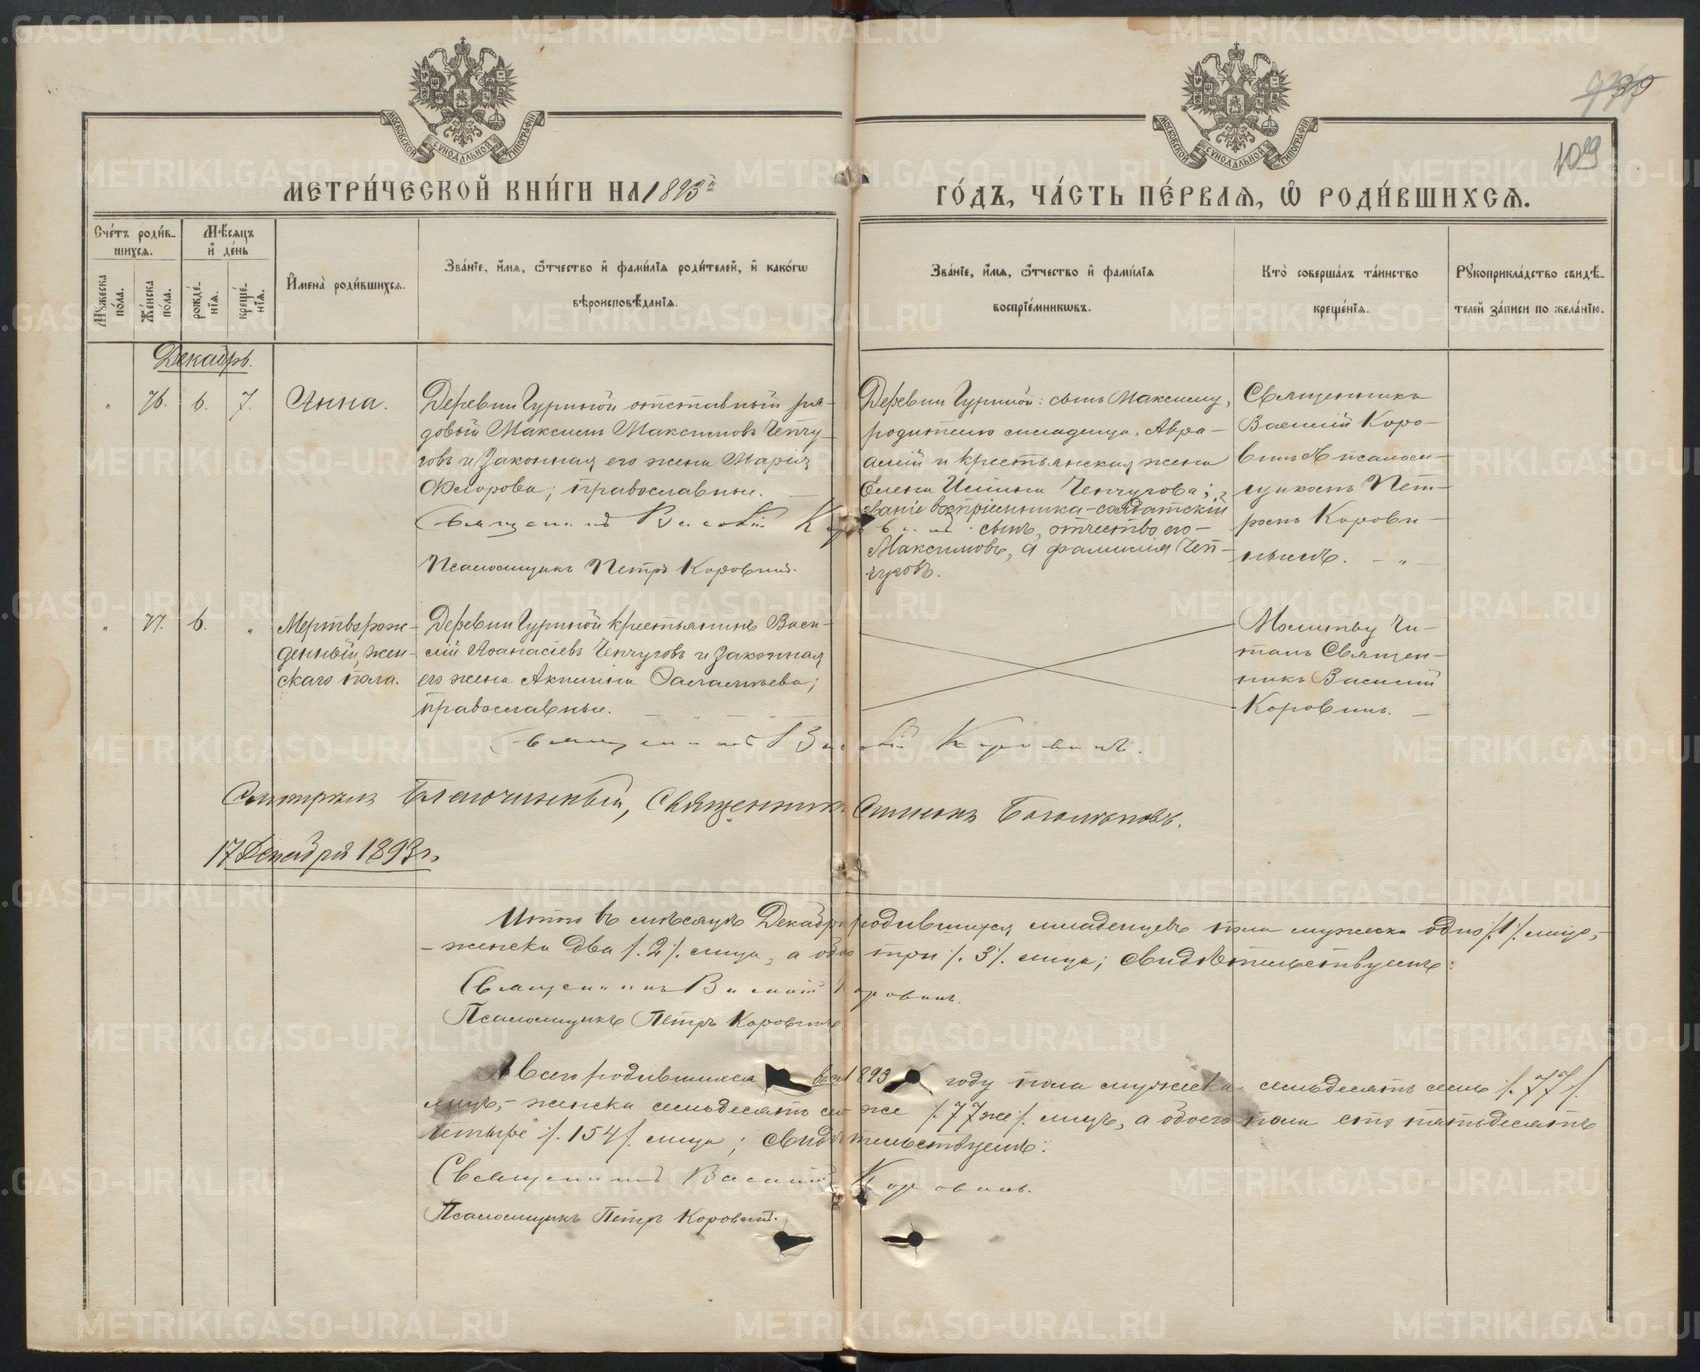 МЕТРИ́ЧЕСКОЙ КНИ́ГИ НА 1893й
ГО́ДЪ, ЧА́СТЬ ПЕ́РВАѦ, Ѡ РОДИ́ВШИХСѦ.
109
Сче́тъ роди́в-
шихсѧ.
Мѣ́сѧцъ
и҆ де́нь
Мꙋ́жеска
по́ла.
Же́нска
по́ла.
рожде́-
нїѧ.
креще́-
нїѧ.
И҆мена̀ роди́вшихсѧ.
Зва́нїе, и҆́мѧ, ѻ҆́тчество и҆ фами́лїѧ роди́телей, и҆ како́гѡ
вѣроисповѣ́данїѧ.
Зва́нїе, и҆́мѧ, ѻ҆́тчество и҆ фами́лїѧ
воспрїе́мникѡвъ.
Кто̀ соверша́лъ та́инство
креще́нїѧ.
Рꙋкоприкла́дство свидѣ́-
телей за́писи по жела́нїю.
Декабрь.
" 76. 6. 7.
Анна.
Деревни Гуриной отставный ря-
довый Максимъ Максимовъ Чепчу-
говъ и законная его жена Марія
Флорова; православные.
Священникъ Василій Коровинъ.
Псаломщикъ Петръ Коровинъ.
Деревни Гуриной: сынъ Максиму,
родителю младенца, Авра-
амій и крестьянская жена
Елена Исаина Чепчугова;
званіе воспріемника-солдатскій
сынъ, отчество его-
Максимовъ, а фамилія Чеп-
чуговъ.
Священникъ
Василій Коро-
винъ съ псалом-
щикомъ Пет-
ромъ Корови-
нымъ. - " -
" 77. 6. "
Мертворож-
денный, жен-
скаго пола.
Деревни Гуриной крестьянинъ Васи-
лій Аѳанасіевъ Чепчуговъ и законная
его жена Акилина Савватиева;
православные.
Священникъ Василій Коровинъ.
Молитву чи-
талъ Священ-
никъ Василій
Коровинъ.
Смотрѣлъ Благочинный, Священникъ Симеонъ Богомоловъ.
17 Декабря 1893 г.
Итого въ мѣсяцѣ Декабрѣ родившихся младенцевъ пола мужеска одно /.1/. лицо,-
- женска два /.2/. лица, а обоего три /.3/. лица; свидѣтельствуемъ:
Священникъ Василій Коровинъ.
Псаломщикъ Петръ Коровинъ
А всего родившихся въ 1893 году пола мужеска семьдесятъ семь /.77/.
лицъ,- женска семьдесятъ семь же /.77 же/. лицъ, а обоего пола сто пятьдесятъ
четыре /.154/. лица; свидѣтельствуемъ:
Священникъ Василій Коровинъ.
Псаломщикъ Петръ Коровинъ.